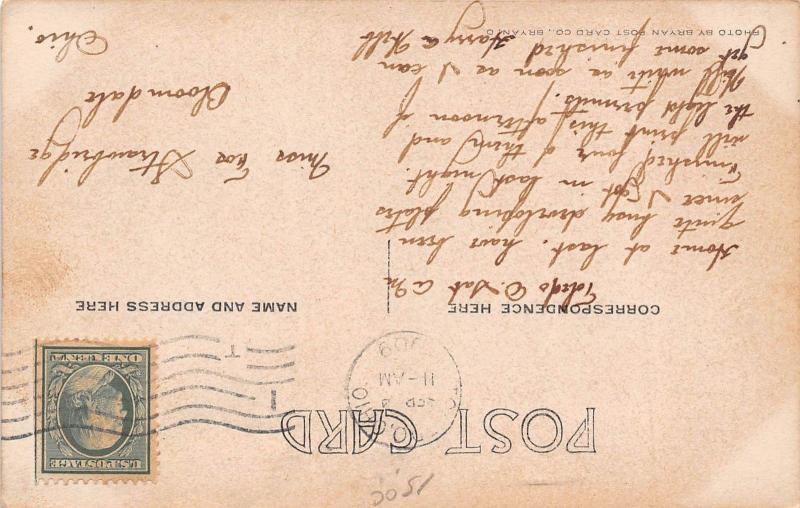 POST CARD
U.S. POSTAGE
ONE CENT
TOLEDO, OHIO.
11-AM
1909
1
T
CORRESPONDENCE HERE
NAME AND ADDRESS HERE
Toledo O Sat A.M
Home at last. have been
quite busy developing plates
since I got in last night.
Finished four of them and
will print this afternoon if
the light permits.
Will write as soon as I can
get some finished Harry A Hill
Miss Strawbridge
Bloomdale
Ohio.
PHOTO BY BRYAN POST CARD CO., BRYAN, O
150C